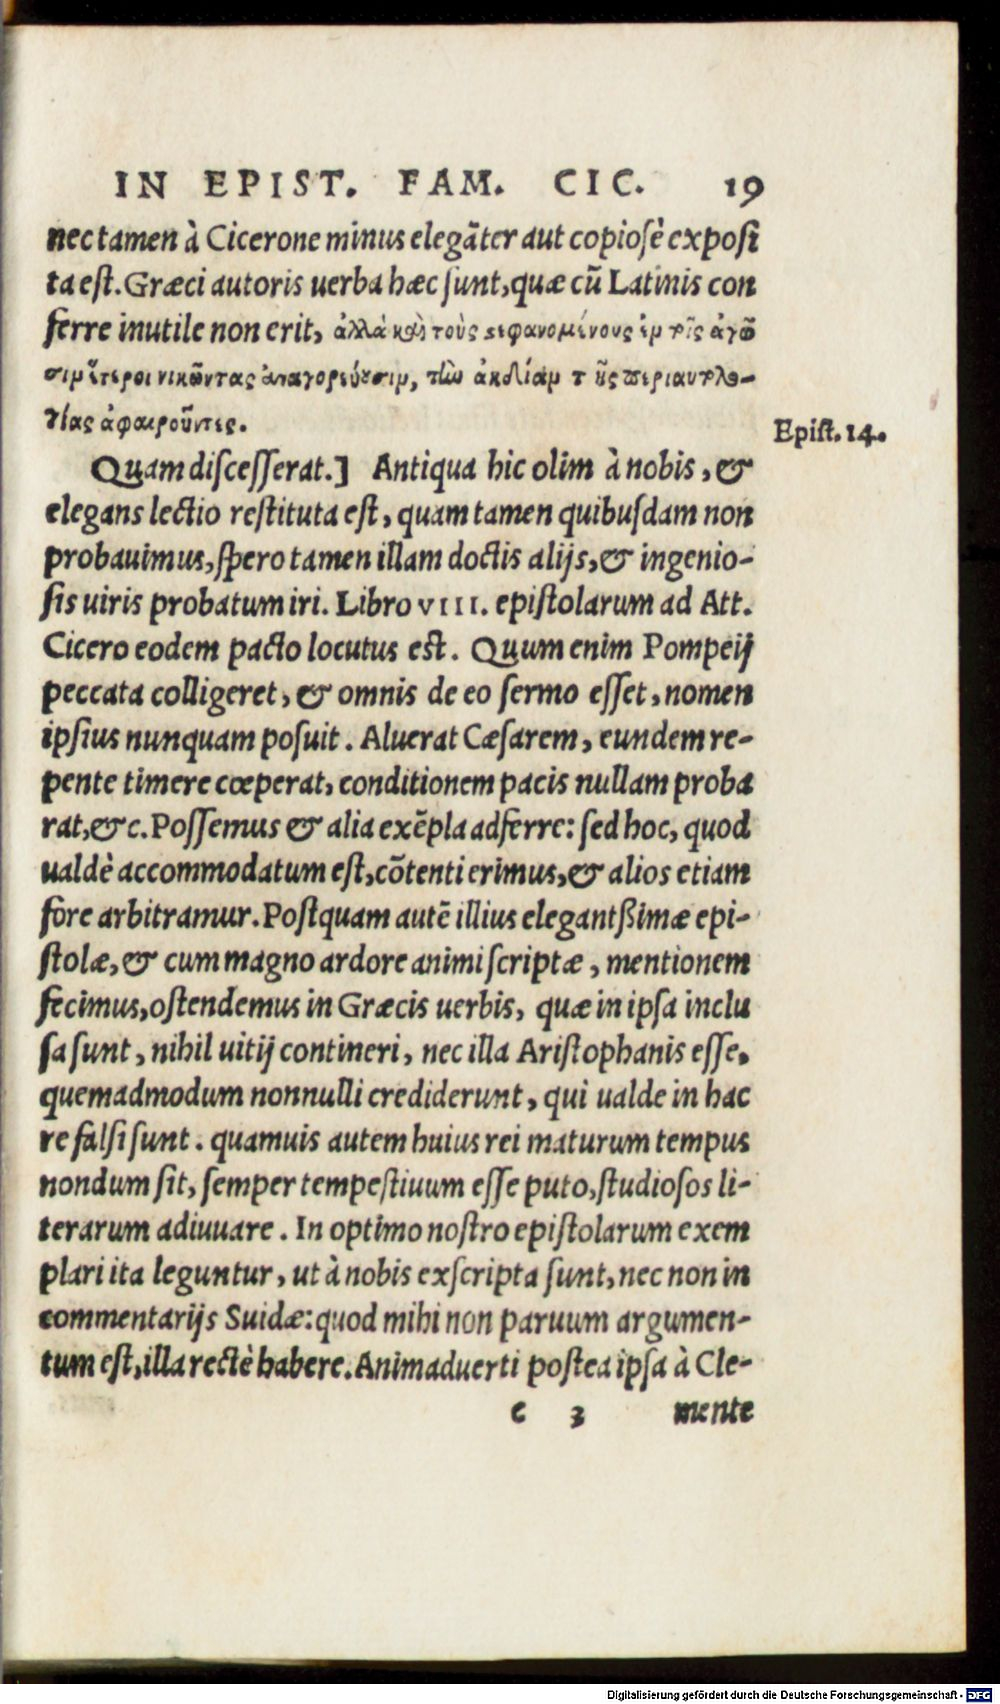 IN EPIST. FAM. CIC. 19
nec tamen à Cicerone minus elegãter aut copiosè exposi
ta est. Græci autoris uerba hæc sunt, quæ cũ Latinis con
ferre inutile non erit, ἀλλὰ καὶ τοὺς στεφανουμένους ἐν τοῖς ἀγῶ
σιν ἕτεροι νικῶντας ἀναγορεύουσιν, τὴν ἀηδίαν τῆς περιαυτολο-
γίας ἀφαιροῦντες.
Epist. 14.
Quam discesserat.] Antiqua hic olim à nobis, &
elegans lectio restituta est, quam tamen quibusdam non
probauimus, spero tamen illam doctis alijs, & ingenio-
sis uiris probatum iri. Libro VIII. epistolarum ad Att.
Cicero eodem pacto locutus est. Quum enim Pompeij
peccata colligeret, & omnis de eo sermo esset, nomen
ipsius nunquam posuit. Aluerat Cæsarem, eundem re-
pente timere cœperat, conditionem pacis nullam proba
rat, &c. Possemus & alia exẽpla adferre: sed hoc, quod
ualdè accommodatum est, cõtenti erimus, & alios etiam
fore arbitramur. Postquam autẽ illius elegantßimæ epi-
stolæ, & cum magno ardore animi scriptæ, mentionem
fecimus, ostendemus in Græcis uerbis, quæ in ipsa inclu
sa sunt, nihil uitij contineri, nec illa Aristophanis esse,
quemadmodum nonnulli crediderunt, qui ualde in hac
re falsi sunt. quamuis autem huius rei maturum tempus
nondum sit, semper tempestiuum esse puto, studiosos li-
terarum adiuuare. In optimo nostro epistolarum exem
plari ita leguntur, ut à nobis exscripta sunt, nec non in
commentarijs Suidæ: quod mihi non paruum argumen-
tum est, illa rectè habere. Animaduerti postea ipsa à Cle-
c 3 mente
Digitalisierung gefördert durch die Deutsche Forschungsgemeinschaft - DFG